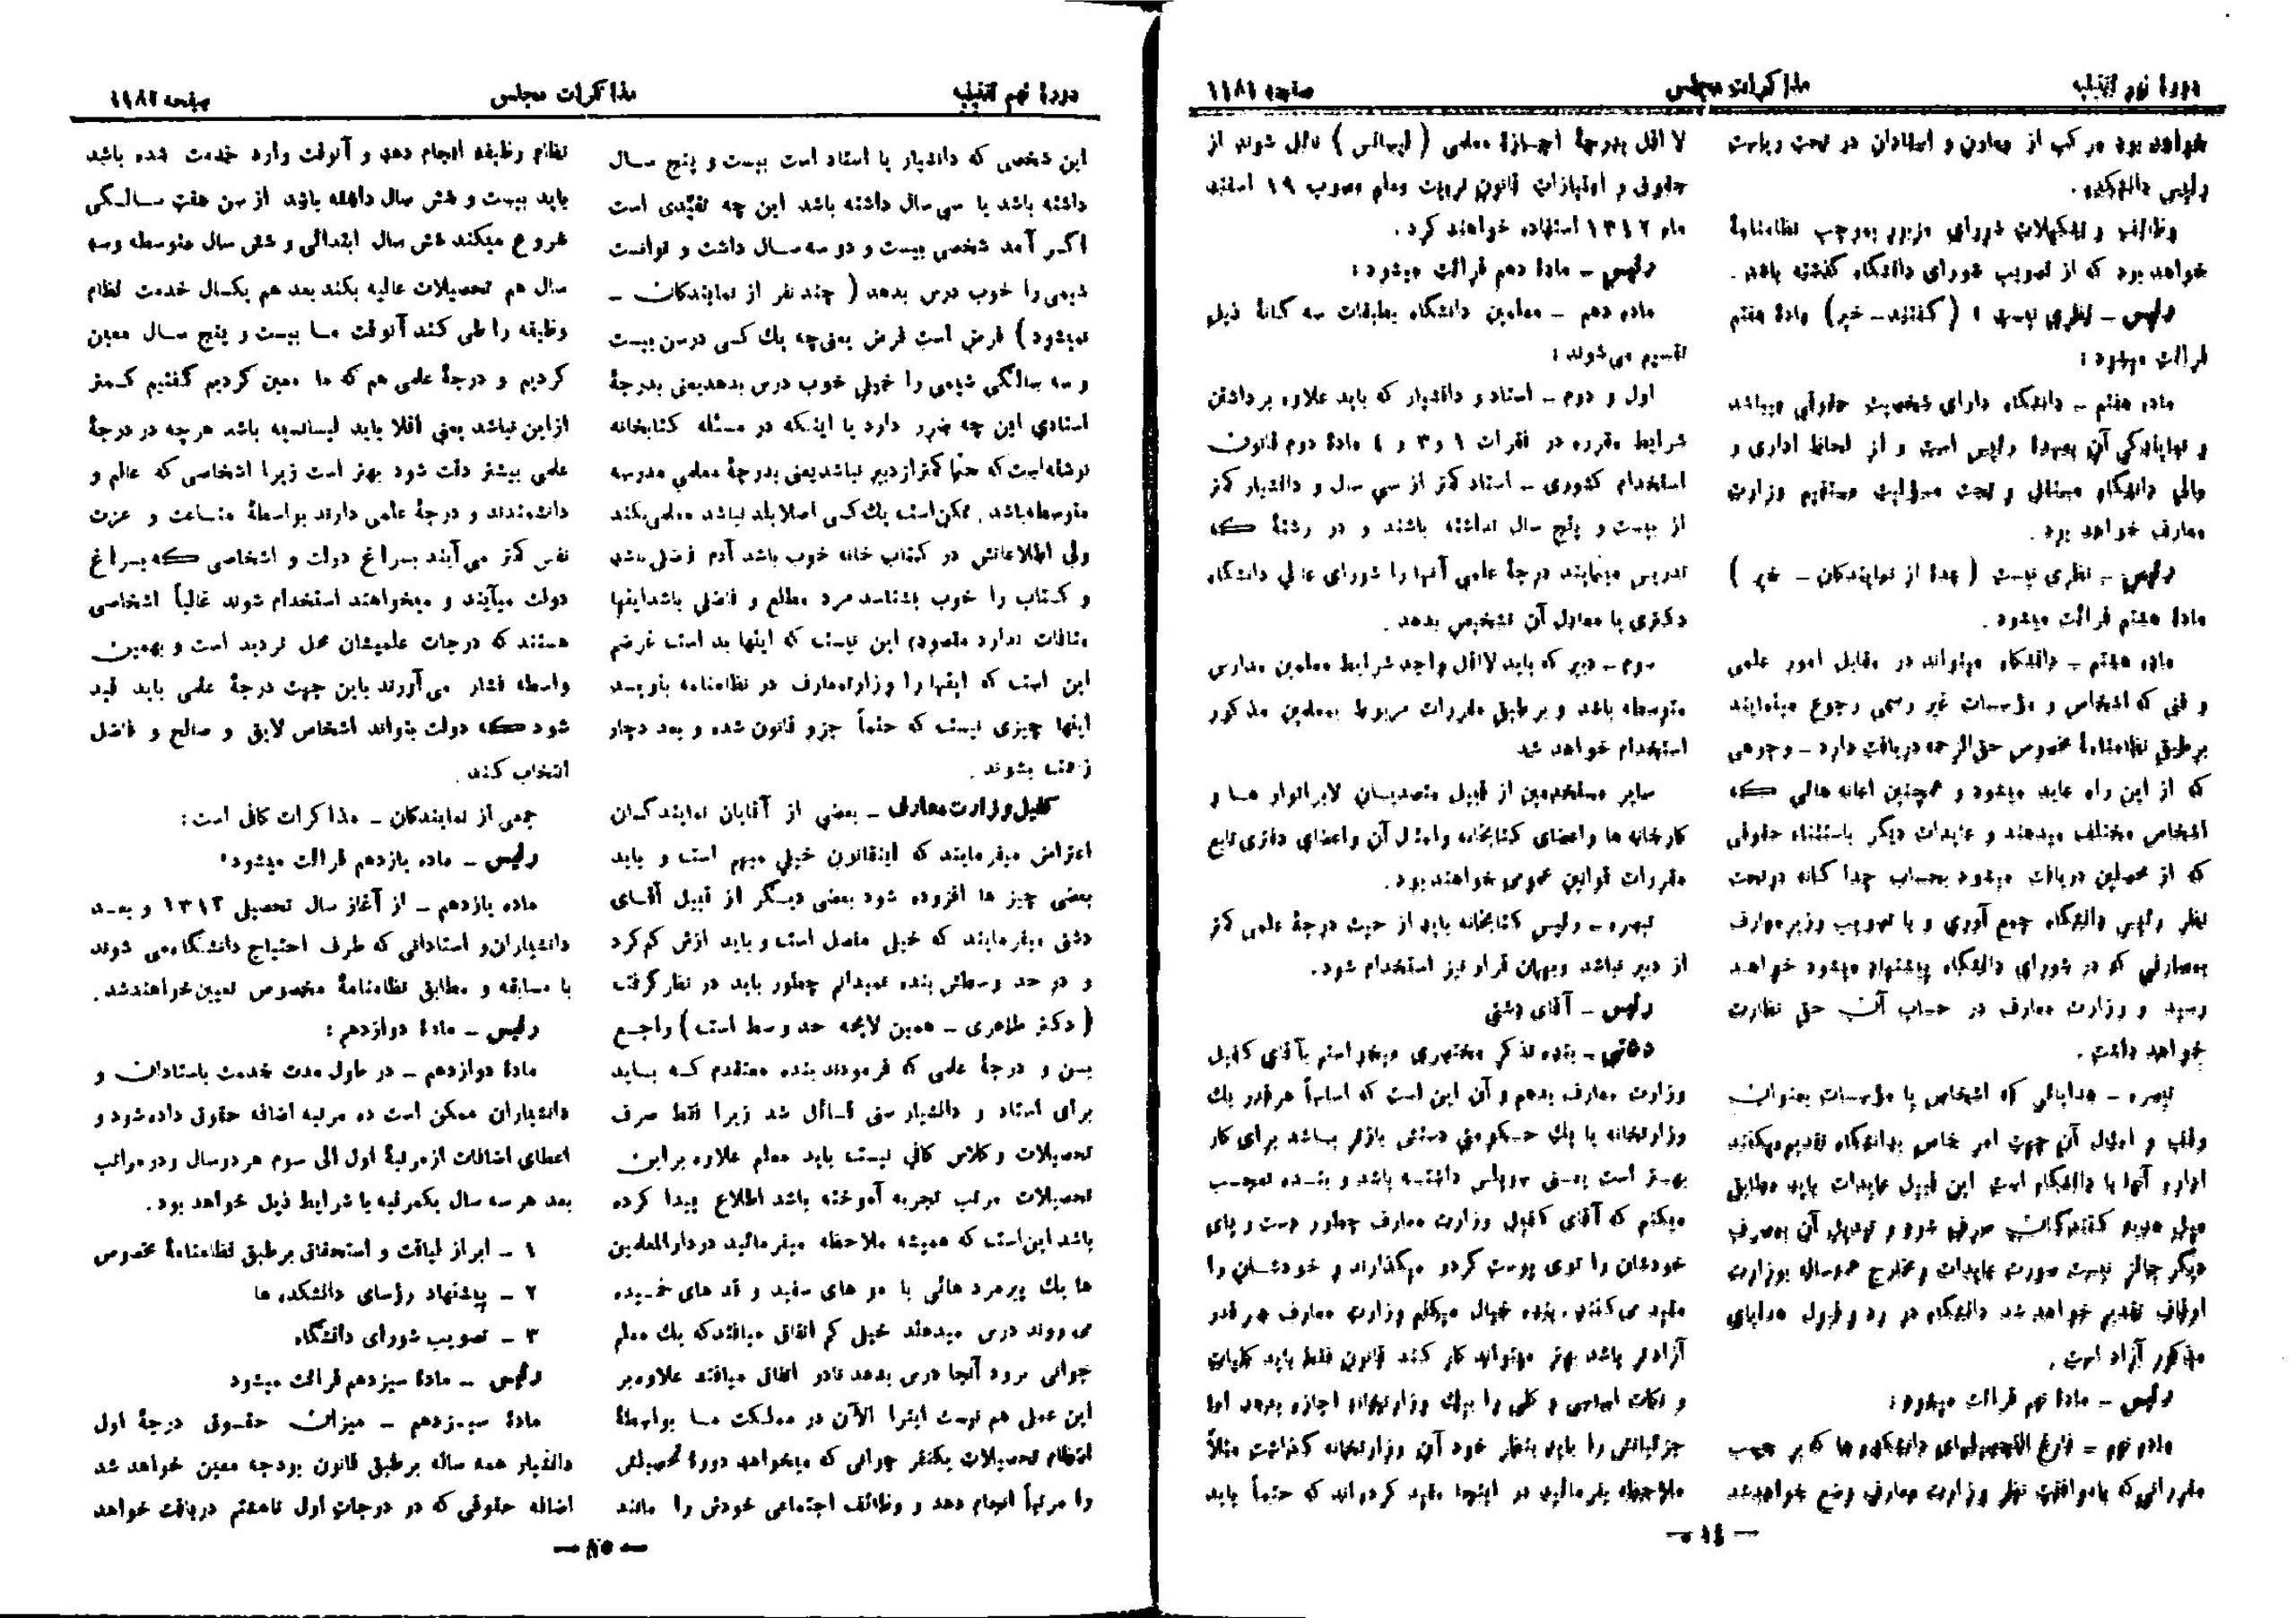 دورهٔ نهم تقنینیه
مذاکرات مجلس
صفحه ۱۱۸۱
خواهد بود مرکب از معاون و استادان در تحت ریاست
رئیس دانشکده .
وظائف و تشکیلات شورای مزبور بموجب نظامنامهٔ
خواهد بود که از تصویب شورای دانشگاه گذشته باشد .
رئیس ـ نظری نیست ؟ (گفتند ـ خیر) مادهٔ هفتم
قرائت میشود :
ماده هفتم ـ دانشگاه دارای شخصیت حقوقی میباشد
و نمایندگی آن بعهدهٔ رئیس است و از لحاظ اداری و
مالی دانشگاه مستقل و تحت مسئولیت مستقیم وزارت
معارف خواهد بود .
رئیس ـ نظری نیست (عدهٔ از نمایندگان ـ خیر)
مادهٔ هشتم قرائت میشود .
ماده هشتم ـ دانشگاه میتواند در مقابل امور علمی
و فنی که اشخاص و مؤسسات غیر رسمی رجوع مینمایند
برطبق نظامنامهٔ مخصوص حق‌الزحمه دریافت دارد ـ وجوهی
که از این راه عاید میشود و همچنین اعانه هائی که
اشخاص مختلف میدهند و عایدات دیگر باستثناء حقوقی
که از محصلین دریافت میشود بحساب جداگانه در تحت
نظر رئیس دانشگاه جمع آوری و با تصویب وزیر معارف
بمصارفی که در شورای دانشگاه پیشنهاد میشود خواهد
رسید و وزارت معارف در حساب آن حق نظارت
خواهد داشت .
تبصره ـ هدایائی که اشخاص یا مؤسسات بعنوان
وقف و امثال آن جهت امر خاص بدانشگاه تقدیم میکنند
اداره آنها با دانشگاه است این قبیل عایدات باید مطابق
میل هدیه کنندگان صرف شود و تبدیل آن بمصرف
دیگر جائز نیست صورت عایدات و مخارج همه‌ساله بوزارت
اوقاف تقدیم خواهد شد دانشگاه در رد و قبول هدایای
مذکور آزاد است .
رئیس ـ مادهٔ نهم قرائت میشود :
ماده نهم ـ فارغ التحصیلهای دانشکده ها که بر حسب
مقرراتی که با موافقت نظر وزارت معارف وضع خواهد شد
لااقل بدرجهٔ اجازهٔ معلمی (لیسانس) نائل شوند از
حقوق و امتیازات قانون تربیت معلم مصوب ۱۹ اسفند
ماه ۱۳۱۲ استفاده خواهند کرد .
رئیس ـ مادهٔ دهم قرائت میشود :
ماده دهم ـ معلمین دانشگاه بطبقات سه گانهٔ ذیل
تقسیم می‌شوند :
اول و دوم ـ استاد و دانشیار که باید علاوه بر داشتن
شرایط مقرره در فقرات ۱ و ۳ و ٤ مادهٔ دوم قانون
استخدام کشوری ـ استاد کمتر از سی سال و دانشیار کمتر
از بیست و پنج سال نداشته باشند و در رشتهٔ که
تدریس مینمایند درجهٔ علمی آنها را شورای عالی دانشگاه
دکتری یا معادل آن تشخیص بدهد .
سوم ـ دبیر که باید لااقل واجد شرایط معلمین مدارس
متوسطه باشد و برطبق مقررات مربوط بمعلمین مذکور
استخدام خواهد شد
سایر مستخدمین از قبیل متصدیان لابراتوار ها و
کارخانه ها و اعضای کتابخانه و امثال آن و اعضای دفتری تابع
مقررات قوانین عمومی خواهند بود .
تبصره ـ رئیس کتابخانه باید از حیث درجهٔ علمی کمتر
از دبیر نباشد و بهمان قرار نیز استخدام شود .
رئیس ـ آقای دشتی
دشتی ـ بنده تذکر مختصری میخواستم بآقای کفیل
وزارت معارف بدهم و آن این است که اساساً هر قدر یك
وزارتخانه یا یك حکومتی دستش بازتر باشد برای کار
بهتر است یعنی سوپلس داشته باشد و بنده تعجب
میکنم که آقای کفیل وزارت معارف چطور دست و پای
خودشان را توی پوست گردو میگذارند و خودشان را
مقید می‌کنند، بنده خیال میکنم وزارت معارف هر قدر
آزادتر باشد بهتر میتواند کار کند قانون فقط باید کلیات
و نکات اساسی و کلی را بیك وزارتخانه اجازه بدهد اما
جزئیاتش را باید بنظر خود آن وزارتخانه گذاشت مثلاً
ملاحظه بفرمائید در اینجا مقید کرده‌اند که حتماً باید
— ۱٤ —
دورهٔ نهم تقنینیه
مذاکرات مجلس
صفحه ۱۱۸۲
این شخصی که دانشیار یا استاد است بیست و پنج سال
داشته باشد یا سی سال داشته باشد این چه تقیّدی است
اگر آمد شخصی بیست و دو سه سال داشت و توانست
شیمی را خوب درس بدهد (چند نفر از نمایندگان ـ
نمیشود) فرض است فرض یعنی‌چه یك کسی در سن بیست
و سه سالگی شیمی را خیلی خوب درس بدهد یعنی بدرجهٔ
استادی این چه ضرر دارد یا اینکه در مسئله کتابخانه
نوشته‌است که حتما کمتر از دبیر نباشد یعنی بدرجهٔ معلمی مدرسه
متوسطه باشد . ممکن است یك کسی اصلا بلد نباشد معلمی بکند
ولی اطلاعاتش در کتاب خانه خوب باشد آدم فاضلی باشد
و کتاب را خوب بشناسد مرد مطلع و فاضلی باشد اینها
منافات ندارد مقصودم این نیست که اینها بد است غرضم
این است که اینها را وزارتمعارف در نظامنامه بنویسد
اینها چیزی نیست که حتماً جزو قانون شده و بعد دچار
زحمت بشوند .
کفیل وزارت معارف ـ بعضی از آقایان نمایندگان
اعتراض میفرمایند که اینقانون خیلی مبهم است و باید
بعضی چیز ها افزوده شود بعضی دیگر از قبیل آقای
دشتی میفرمایند که خیلی مفصل است و باید ازش کم کرد
و در حد وسطش بنده نمیدانم چطور باید در نظر گرفت
(دکتر طاهری ـ همین لایحه حد وسط است) راجع
بسن و درجهٔ علمی که فرمودند بنده معتقدم که باید
برای استاد و دانشیار سنی قائل شد زیرا فقط صرف
تحصیلات و کلاس کافی نیست باید معلم علاوه بر این
تحصیلات مرتب تجربه آموخته باشد اطلاع پیدا کرده
باشد این‌است که همیشه ملاحظه میفرمائید در دارالمعلمین
ها یك پیرمرد هائی با مو های سفید و قد های خمیده
می روند درس میدهند خیلی کم اتفاق میافتد که یك معلم
جوانی برود آنجا درس بدهد نادر اتفاق میافتد علاوه بر
این عملی هم نیست زیرا الآن در مملکت ما بواسطهٔ
انتظام تحصیلات یکنفر جوانی که میخواهد دورهٔ تحصیلش
را مرتباً انجام دهد و وظائف اجتماعی خودش را مانند
نظام وظیفه انجام دهد و آنوقت وارد خدمت شده باشد
باید بیست و شش سال داشته باشد از سن هفت سالگی
شروع میکند شش سال ابتدائی و شش سال متوسطه و سه
سال هم تحصیلات عالیه بکند بعد هم یکسال خدمت نظام
وظیفه را طی کند آنوقت ما بیست و پنج سال معین
کردیم و درجهٔ علمی هم که ما معین کردیم گفتیم کمتر
از این نباشد یعنی اقلا باید لیسانسیه باشد هر چه در درجهٔ
علمی بیشتر دقت شود بهتر است زیرا اشخاصی که عالم و
دانشمندند و درجهٔ علمی دارند بواسطهٔ مناعت و عزت
نفس کمتر می‌آیند بسراغ دولت و اشخاصی که بسراغ
دولت میآیند و میخواهند استخدام شوند غالباً اشخاصی
هستند که درجات علمیشان محل تردید است و بهمین
واسطه فشار می‌آورند باین جهت درجهٔ علمی باید قید
شود که دولت بتواند اشخاص لایق و صالح و فاضل
انتخاب کند .
جمعی از نمایندگان ـ مذاکرات کافی است :
رئیس ـ ماده یازدهم قرائت میشود :
ماده یازدهم ـ از آغاز سال تحصیلی ۱۳۱۳ و بعد
دانشیاران و استادانی که طرف احتیاج دانشگاه می شوند
با مسابقه و مطابق نظامنامهٔ مخصوص تعیین خواهند شد .
رئیس ـ مادهٔ دوازدهم :
مادهٔ دوازدهم ـ در طول مدت خدمت باستادان و
دانشیاران ممکن است ده مرتبه اضافه حقوق داده شود و
اعطای اضافات از مرتبهٔ اول الی سوم هر دو سال و در مراتب
بعد هر سه سال یکمرتبه با شرایط ذیل خواهد بود .
۱ ـ ابراز لیاقت و استحقاق برطبق نظامنامهٔ مخصوص
۲ ـ پیشنهاد رؤسای دانشکده ها
۳ ـ تصویب شورای دانشگاه
رئیس ـ مادهٔ سیزدهم قرائت میشود
مادهٔ سیزدهم ـ میزان حقوق درجهٔ اول
دانشیار همه ساله برطبق قانون بودجه معین خواهد شد
اضافه حقوقی که در درجات اول تا هفتم دریافت خواهد
— ۱۵ —